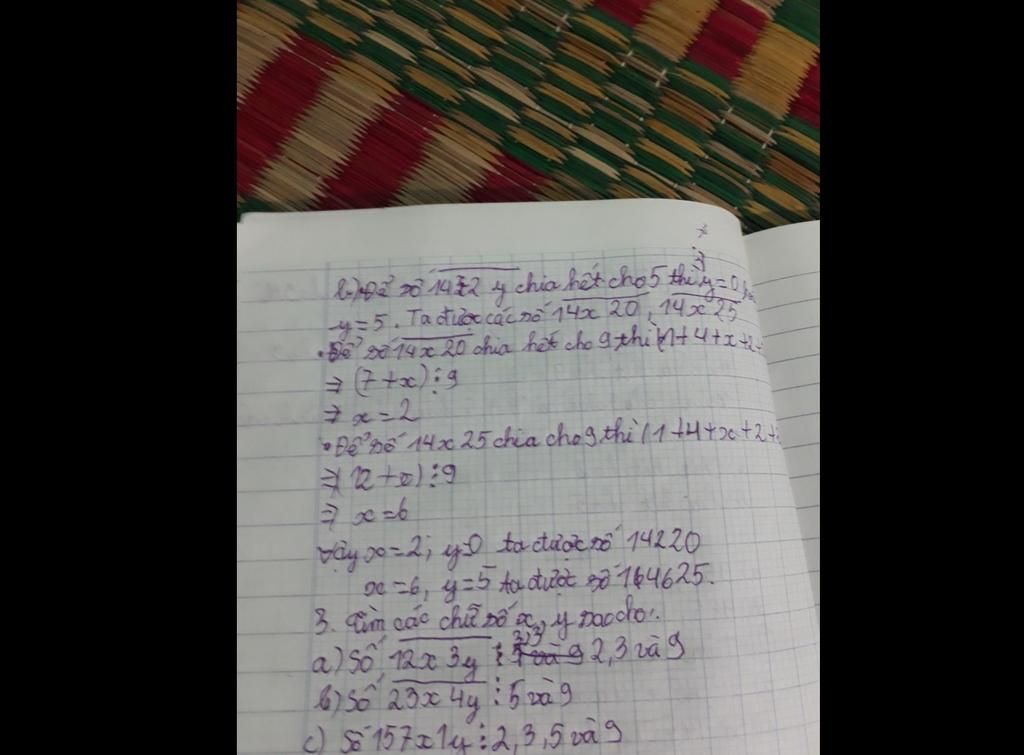 b) Để số 14x2y chia hết cho 5 thì y=0
y=5. Ta được các số 14x20, 14x25
• Để số 14x20 chia hết cho 9 thì (1+4+x+2+
⇒ (7+x)⋮9
⇒ x=2
• Để số 14x25 chia cho 9 thì (1+4+x+2+
⇒ (12+x)⋮9
⇒ x=6
vậy x=2; y=0 ta được số 14220
x=6, y=5 ta được số 14625.
3. Tìm các chữ số x, y sao cho:
a) Số 12x3y ⋮ 2,3 và 9
b) Số 23x4y ⋮ 5 và 9
c) Số 157x1y ⋮ 2, 3, 5 và 9